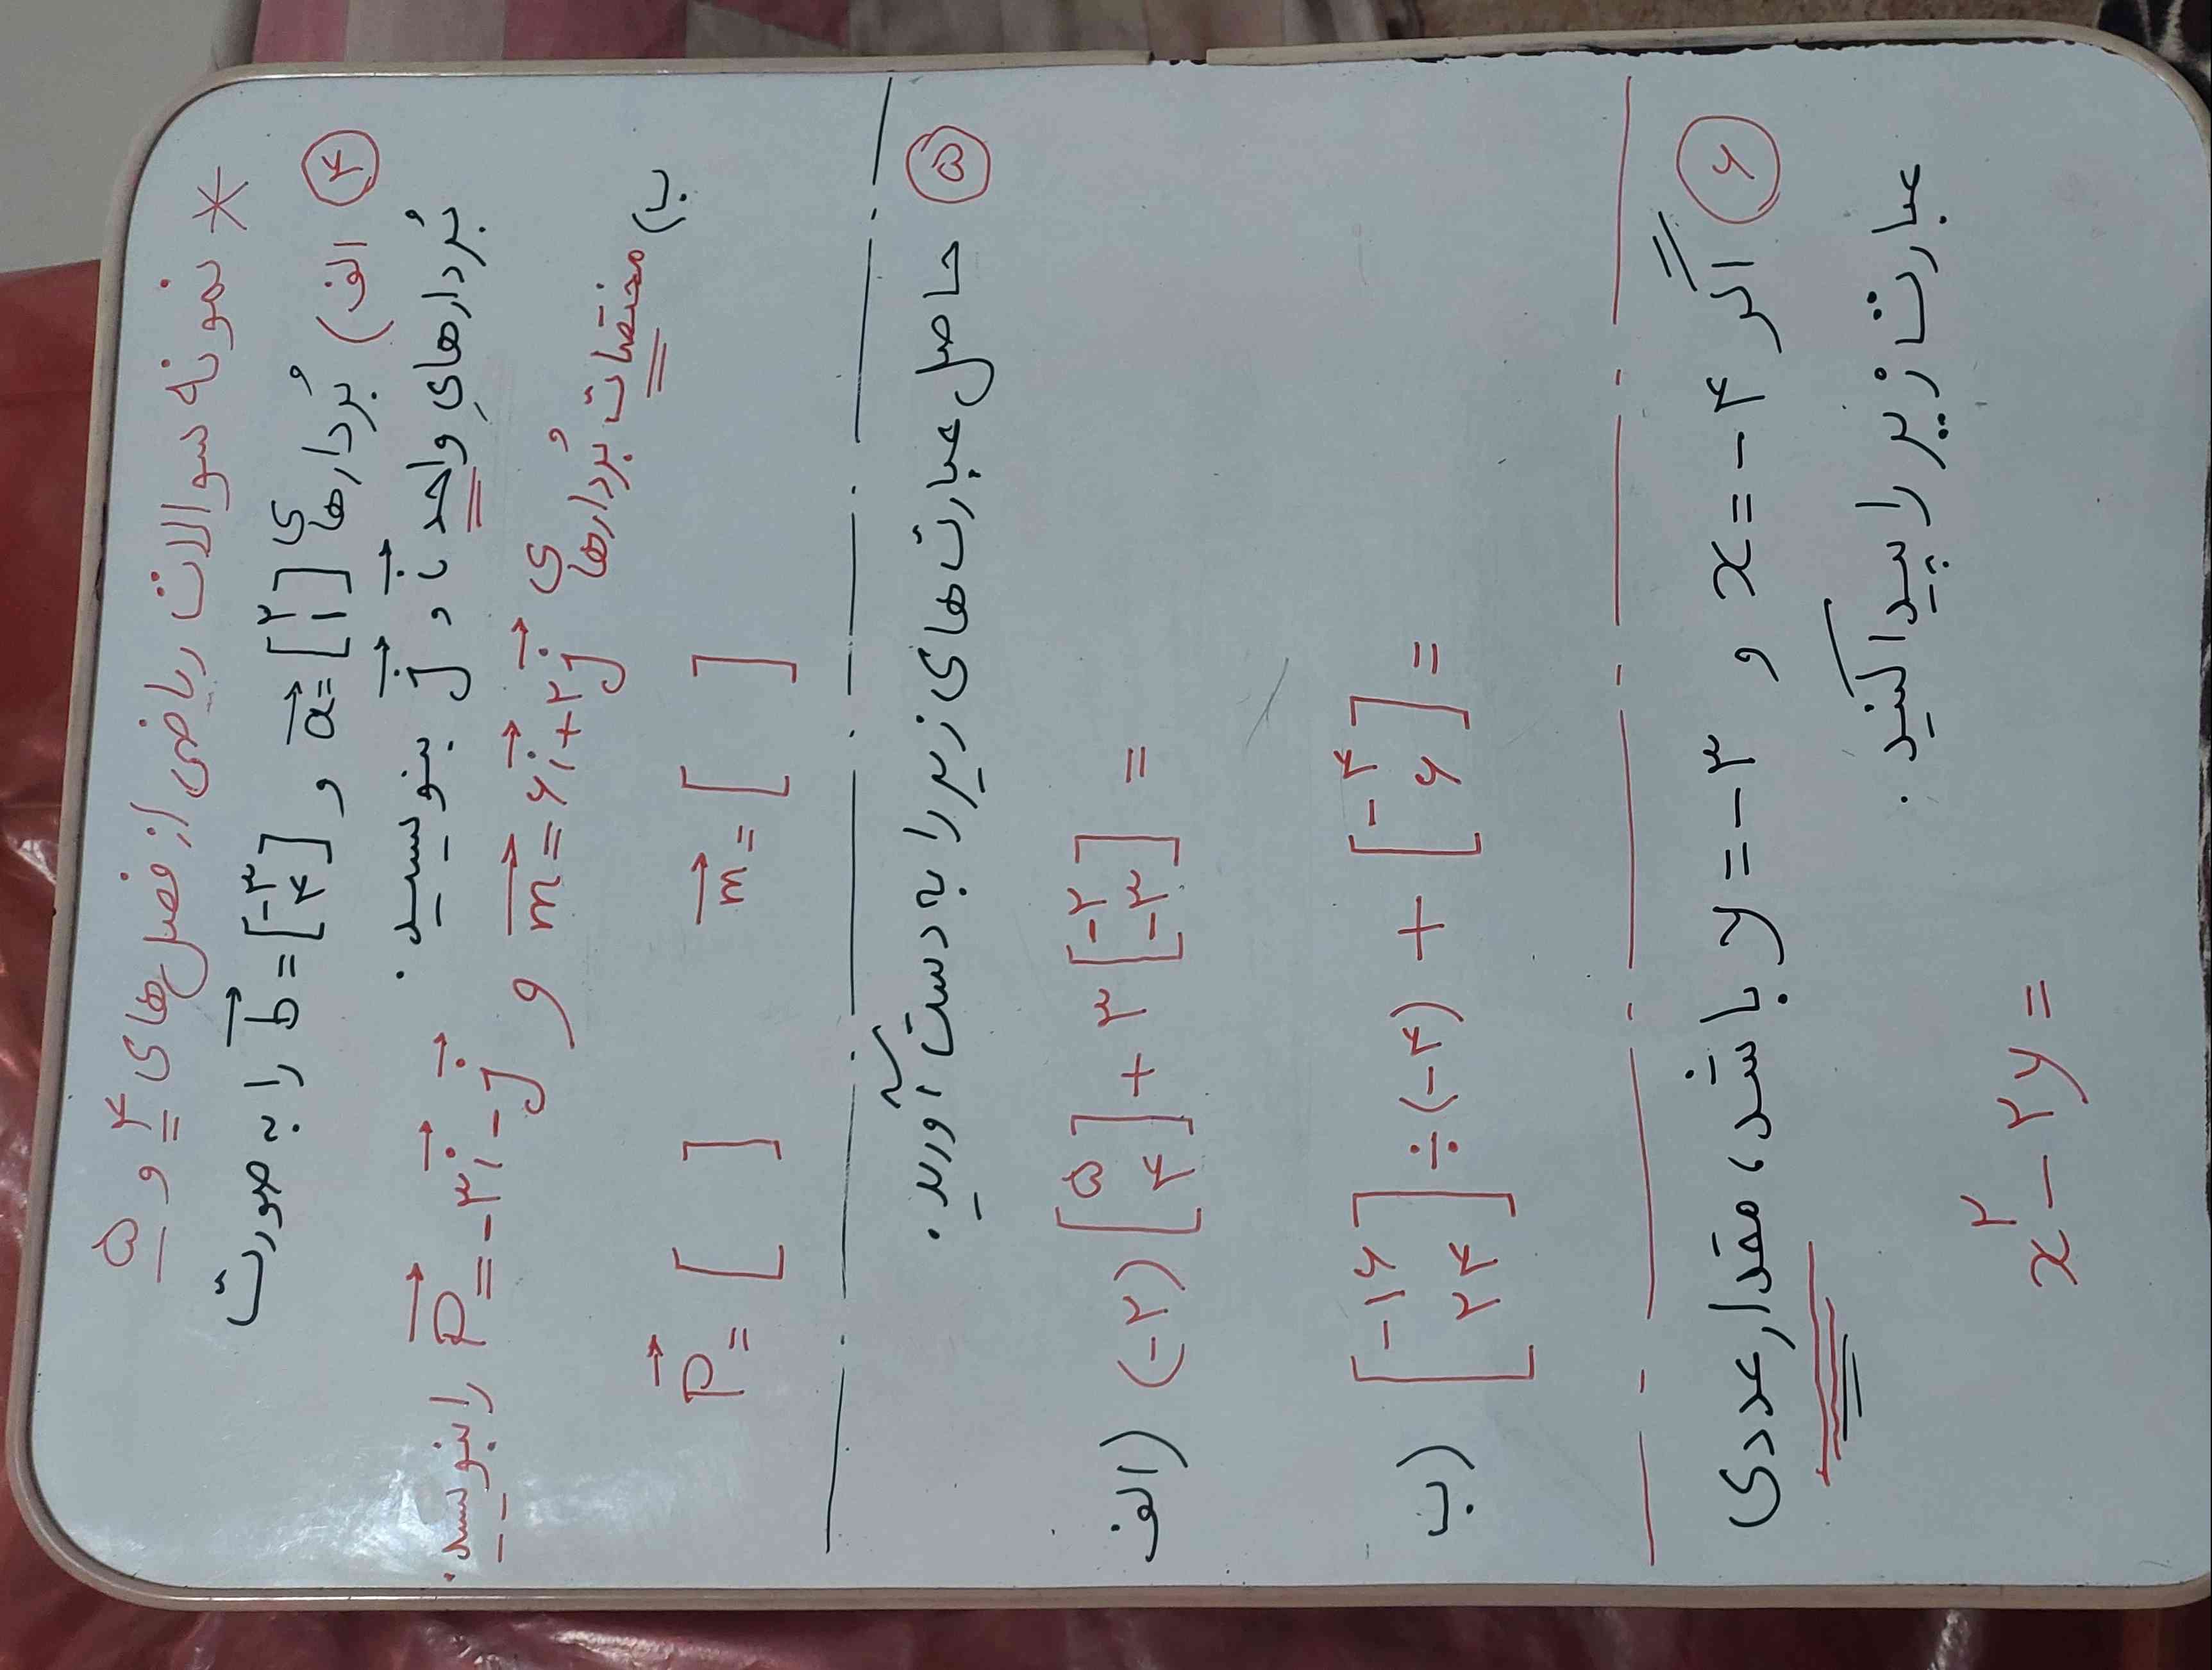 * نمونه سوالات ریاضی از فصل های ۴ و ۵
۴ الف) بُردارهای a = [۲ ۱] و b = [-۳ ۴] را به صورت
بُردارهایِ واحد i و j بنویسید.
ب) مختصات بُردارهای m = ۶i + ۲j و p = -۳i - j را بنویسید.
m = [ ] p = [ ]
۵ حاصل عبارت های زیر را به دست آورید.
الف) (-۲) [۵ ۴] + ۳ [-۲ -۳] =
ب) [-۱۶ ۲۴] ÷ (-۴) + [-۴ ۶] =
۶ اگر x = -۴ و y = -۳ باشد، مقدار عددی
عبارت زیر را پیدا کنید.
x² - ۲y =